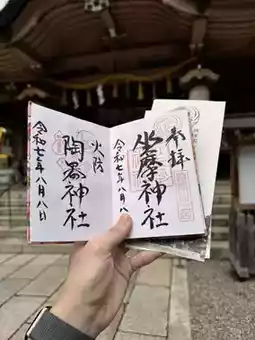 奉拝
坐摩神社
令和七年八月八日
火防
陶器神社
令和七年八月八日